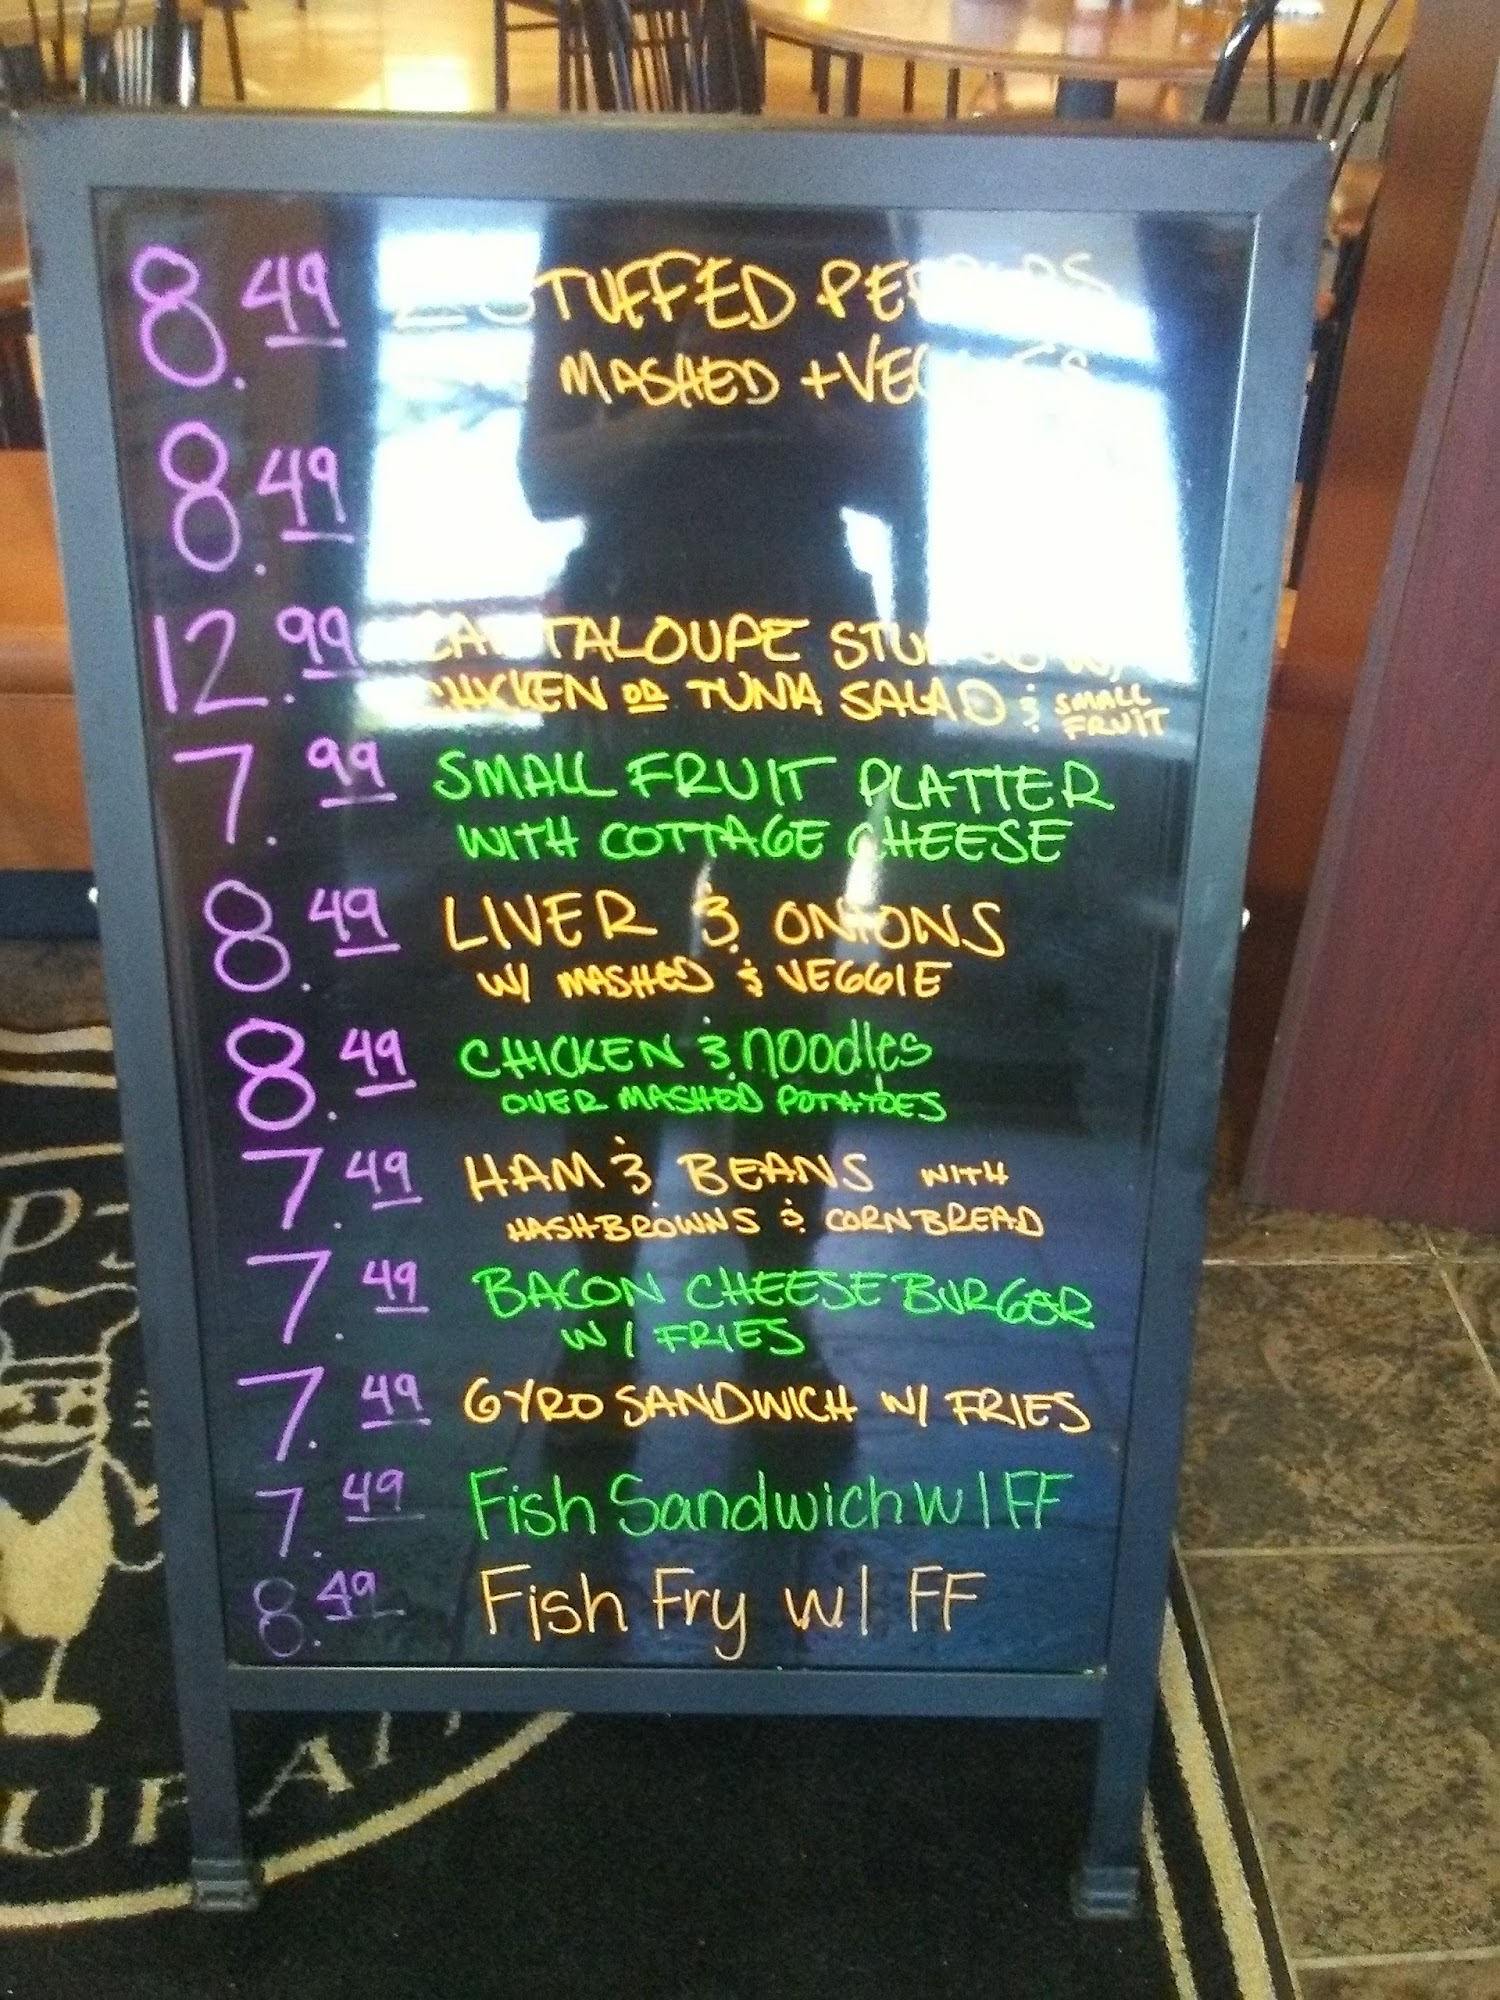 8.49 2 STUFFED PEPPERS
MASHED + VEGGIES
8.49
12.99 CANTALOUPE STUFFED W/
CHICKEN OR TUNA SALAD & SMALL FRUIT
7.99 SMALL FRUIT PLATTER
WITH COTTAGE CHEESE
8.49 LIVER & ONIONS
W/ MASHED & VEGGIE
8.49 CHICKEN & noodles
OVER MASHED POTATOES
7.49 HAM & BEANS WITH
HASHBROWNS & CORNBREAD
7.49 BACON CHEESEBURGER
W/ FRIES
7.49 GYRO SANDWICH W/ FRIES
7.49 Fish Sandwich w/ FF
8.49 Fish Fry w/ FF